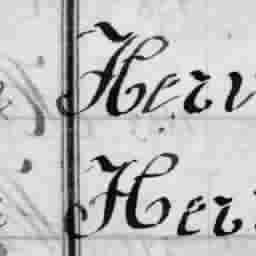 Herv
Her